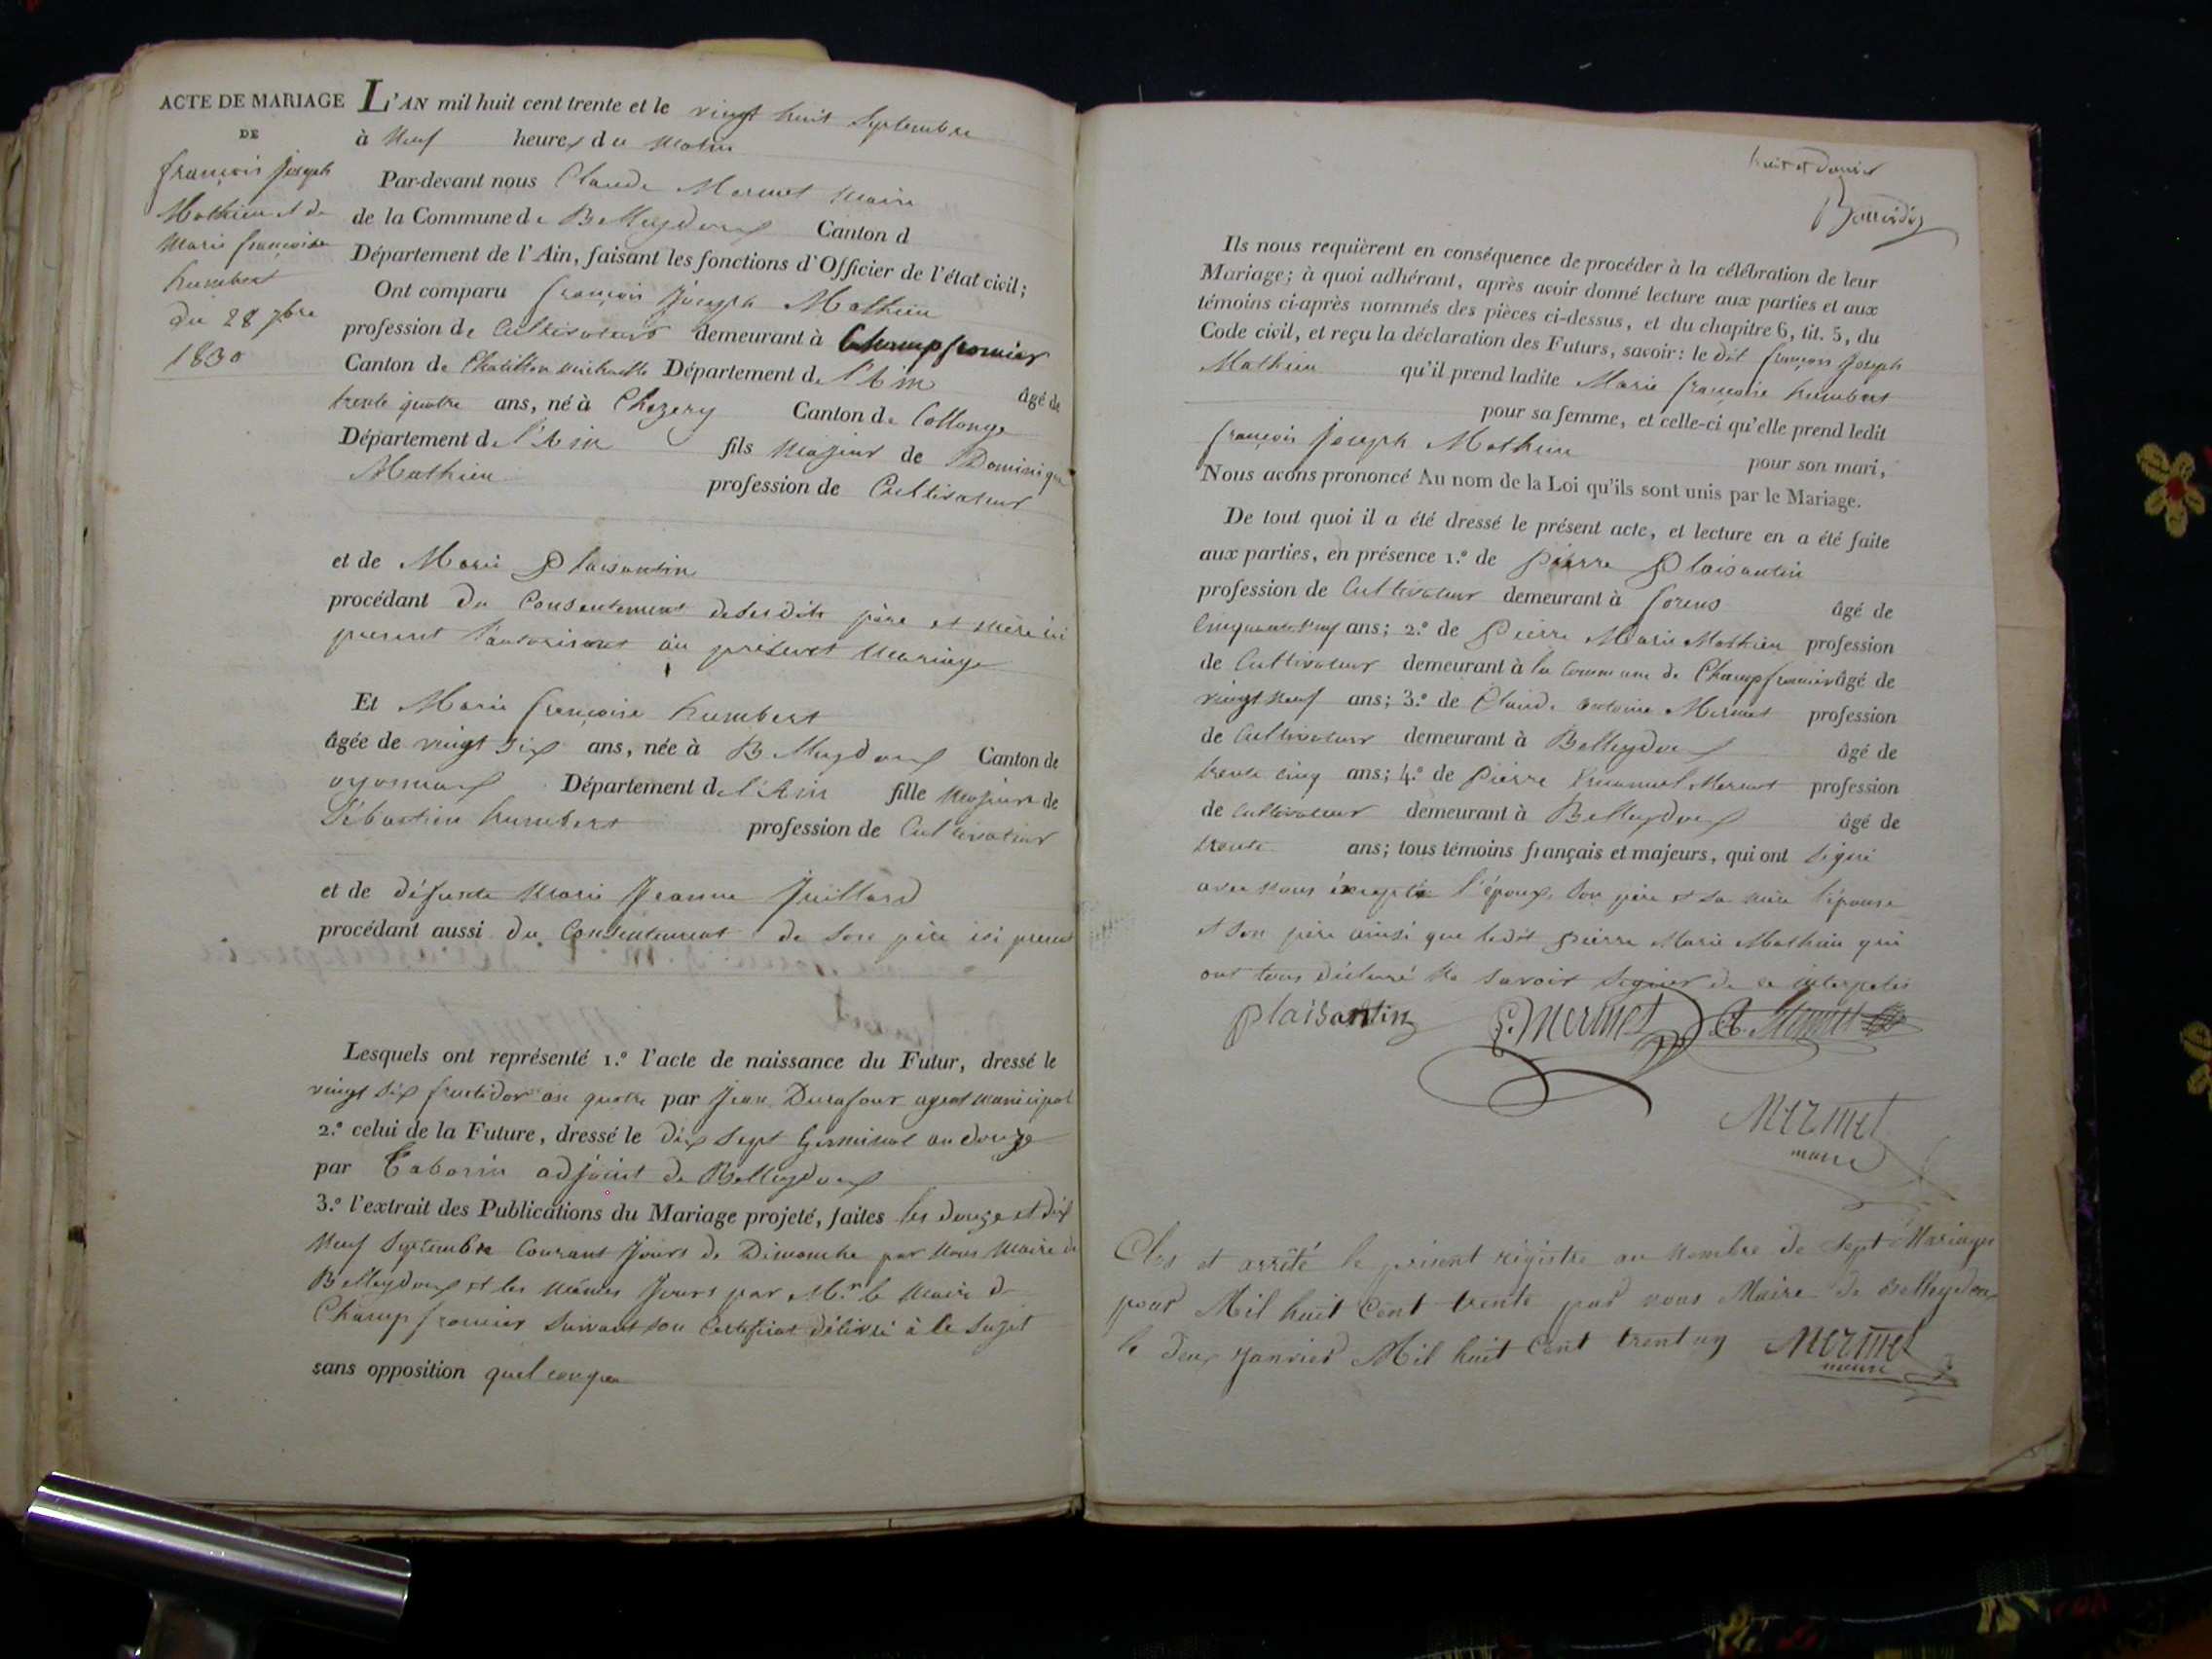 ACTE DE MARIAGE
DE
françois joseph
Mathieu et de
Marie françoise
humbert
du 28 7bre
1830
L'AN mil huit cent trente et le vingt huit Septembre
à Neuf heures du Matin
Par-devant nous Claude Mermet Maire
de la Commune de Belleydoux Canton d
Département de l'Ain, faisant les fonctions d'Officier de l'état civil;
Ont comparu françois joseph Mathieu
profession de Cultivateur demeurant à Champfromier
Canton de Chatillon Michaille Département de l'Ain âgé de
trente quatre ans, né à Chezery Canton de Collonge
Département de l'Ain fils Majeur de Dominique
Mathieu profession de Cultivateur
et de Marie Plaisantin
procédant du Consentement de sesdits père et mère ici
present l'autorisant au présent Mariage
Et Marie françoise humbert
âgée de vingt six ans, née à Belleydoux Canton de
oyonnax Département de l'Ain fille Majeure de
Sébastien humbert profession de Cultivateur
et de défunte Marie Jeanne Juillard
procédant aussi du Consentement de son père ici present
Lesquels ont représenté 1.º l'acte de naissance du Futur, dressé le
vingt six fructidor an quatre par Jean Durafour agent municipal
2.º celui de la Future, dressé le dix sept Germinal an douze
par Tabourin adjoint de Belleydoux
3.º l'extrait des Publications du Mariage projeté, faites les douze et dix
Neuf Septembre Courant Jours de Dimanche par Nous Maire de
Belleydoux et les mêmes Jours par Mr. le Maire de
Champfromier Suivant son Certificat délivré à ce Sujet
sans opposition quelconque
huit et dernier
Ils nous requièrent en conséquence de procéder à la célébration de leur
Mariage; à quoi adhérant, après avoir donné lecture aux parties et aux
témoins ci-après nommés des pièces ci-dessus, et du chapitre 6, tit. 5, du
Code civil, et reçu la déclaration des Futurs, savoir: le dit françois Joseph
Mathieu qu'il prend ladite Marie françoise humbert
pour sa femme, et celle-ci qu'elle prend ledit
françois joseph Mathieu pour son mari,
Nous avons prononcé Au nom de la Loi qu'ils sont unis par le Mariage.
De tout quoi il a été dressé le présent acte, et lecture en a été faite
aux parties, en présence 1.º de pierre Plaisantin
profession de Cultivateur demeurant à forens âgé de
Cinquante Neuf ans; 2.º de Pierre Marie Mathieu profession
de Cultivateur demeurant à la Commune de Champfromier âgé de
vingt Neuf ans; 3.º de Claude antoine Mermet profession
de Cultivateur demeurant à Belleydoux âgé de
trente cinq ans; 4.º de Pierre Emanuel Mermet profession
de Cultivateur demeurant à Belleydoux âgé de
trente ans; tous témoins français et majeurs, qui ont Signé
avec Nous éxcepté l'époux, Son père et Sa mère l'épouse
et Son père ainsi que ledit pierre Marie Mathieu qui
ont tous déclaré Ne Savoir Signer de ce interpelés
plaisantin P. Mermet
Mermet
maire
Clos et arrêté le présent régistre au Nombre de Sept Mariages
pour Mil huit Cent trente par nous Maire de Belleydoux
le deux Janvier Mil huit Cent trent un Mermet
maire